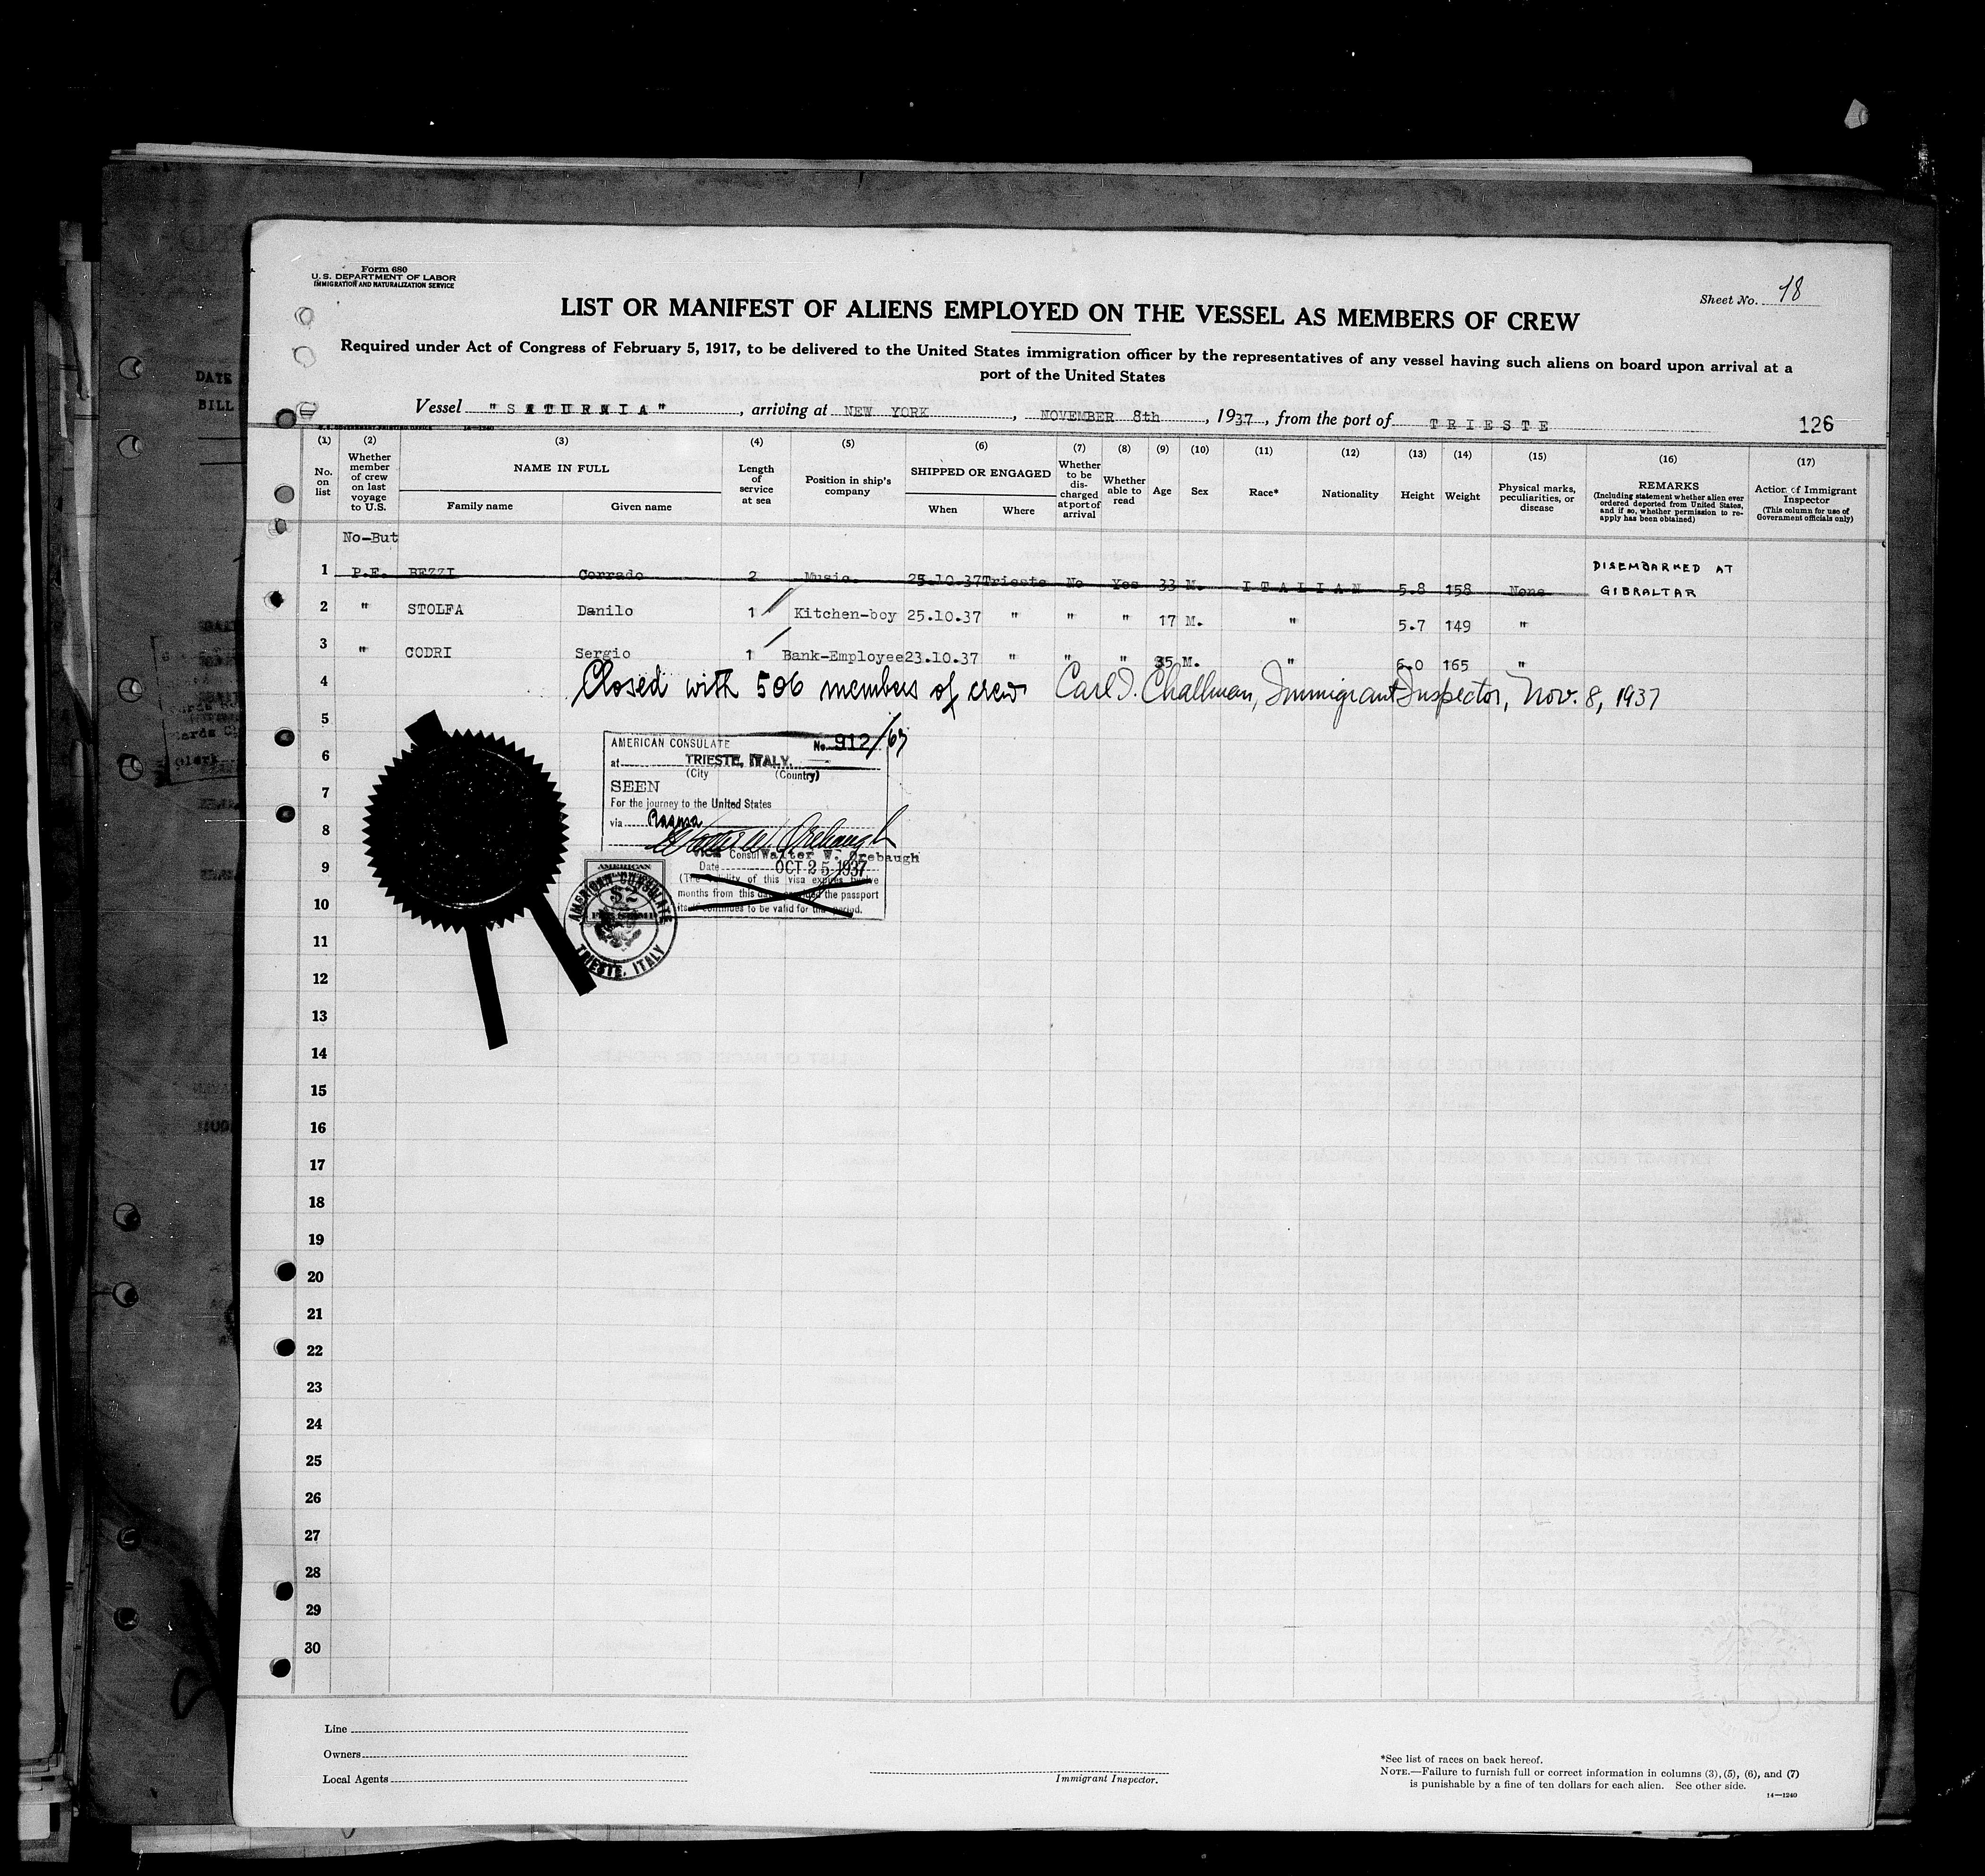 Form 680
U. S. DEPARTMENT OF LABOR
IMMIGRATION AND NATURALIZATION SERVICE
Sheet No. 18
LIST OR MANIFEST OF ALIENS EMPLOYED ON THE VESSEL AS MEMBERS OF CREW
Required under Act of Congress of February 5, 1917, to be delivered to the United States immigration officer by the representatives of any vessel having such aliens on board upon arrival at a
port of the United States
Vessel "SATURNIA", arriving at NEW YORK, NOVEMBER 8th, 1937, from the port of TRIESTE 126
(1) No. on list
(2) Whether member of crew on last voyage to U.S.
(3) NAME IN FULL Family name Given name
(4) Length of service at sea
(5) Position in ship's company
(6) SHIPPED OR ENGAGED When Where
(7) Whether to be discharged at port of arrival
(8) Whether able to read
(9) Age
(10) Sex
(11) Race*
(12) Nationality
(13) Height
(14) Weight
(15) Physical marks, peculiarities, or disease
(16) REMARKS (Including statement whether alien ever ordered deported from United States, and if so, whether permission to re-apply has been obtained)
(17) Action of Immigrant Inspector (This column for use of Government officials only)
No-But
1 P.E. BEZZI Corrado 2 Music. 25.10.37 Trieste No Yes 33 M. ITALIAN 5.8 158 None DISEMBARKED AT GIBRALTAR
2 " STOLFA Danilo 1 Kitchen-boy 25.10.37 " " " 17 M. " 5.7 149 "
3 " CODRI Sergio 1 Bank-Employee 23.10.37 " " " 35 M. " 6.0 165 "
4 Closed with 506 members of crew Carl I. Challman, Immigrant Inspector, Nov. 8, 1937
5
6
7
8
9
10
11
12
13
14
15
16
17
18
19
20
21
22
23
24
25
26
27
28
29
30
AMERICAN CONSULATE No. 912/67
at TRIESTE, ITALY.
(City (Country)
SEEN
For the journey to the United States
via Ragusa
Walter W. Orebaugh
VICE Consul Walter W. Orebaugh
Date OCT 25 1937
(The validity of this visa expires twelve
months from this date provided the passport
itself continues to be valid for that period.
AMERICAN
$2
FEE STAMP
AMERICAN CONSULATE
TRIESTE, ITALY
DATE
BILL
Line
Owners
Local Agents
Immigrant Inspector.
*See list of races on back hereof.
NOTE.—Failure to furnish full or correct information in columns (3), (5), (6), and (7)
is punishable by a fine of ten dollars for each alien. See other side.
14—1240